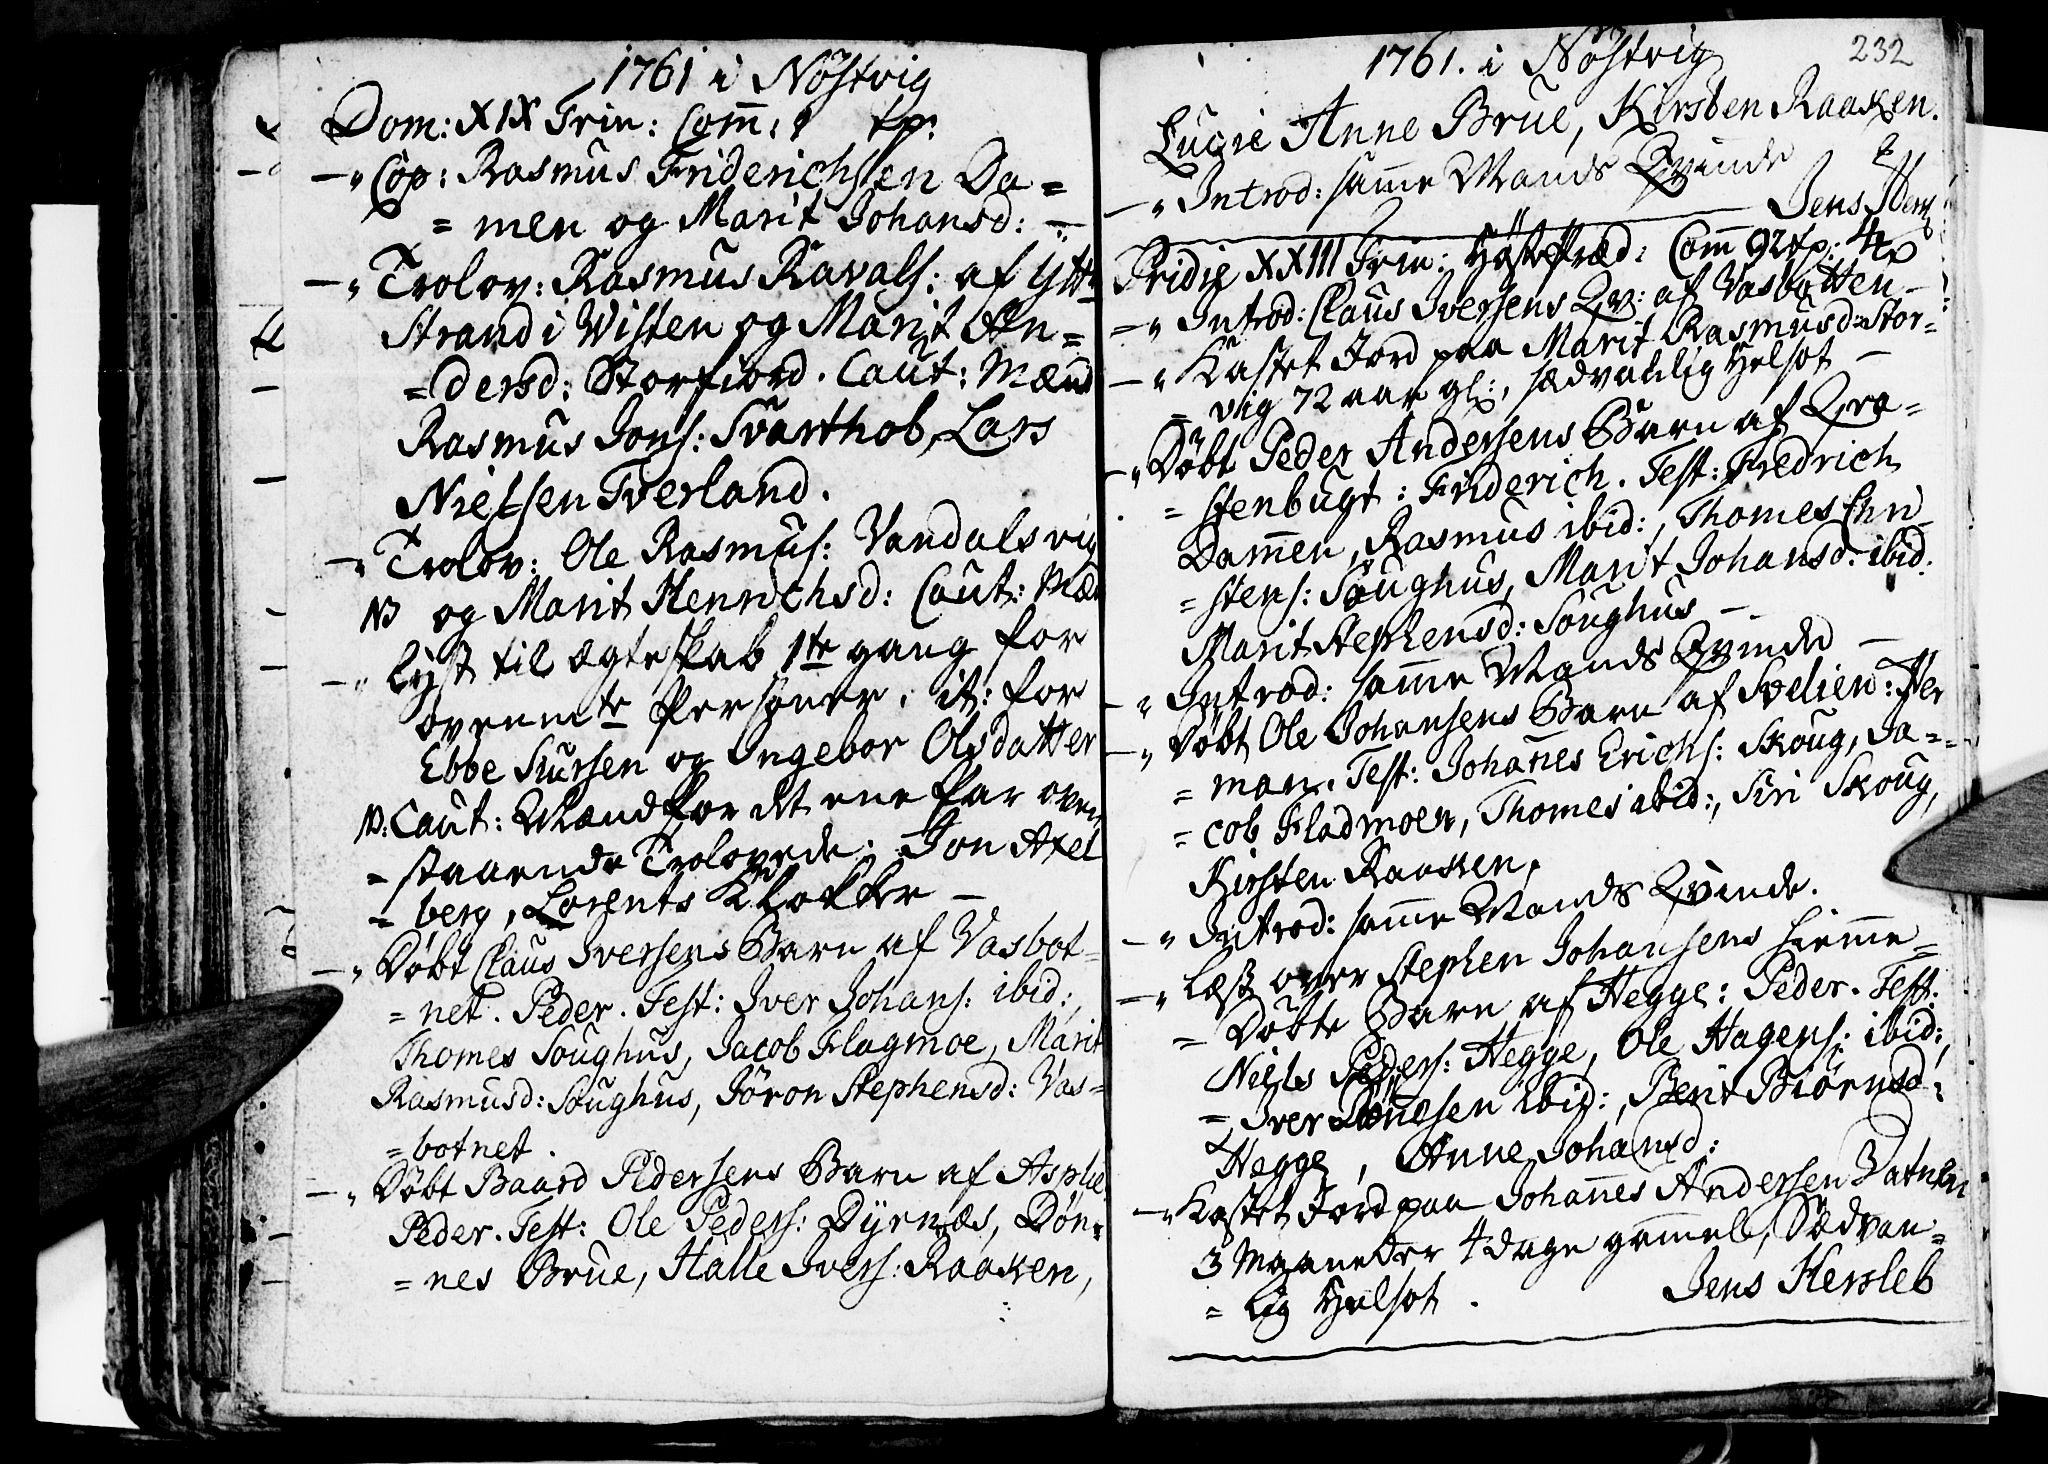 1761 i Nöstvig
Dom: XIX Trin: Com̄:
–" Cop: Rasmus Friderichsen Da=
= men og Marit Johansd: –
–" Trolov: Rasmus Ravals: af Ytt
Strand i Wisten og Marit An=
= dersd: Storfiord. Caut: Mænd
Rasmus Jons: Svarthob, Lars
Nielsen Tverland.
–" Trolov: Ole Rasmus: Vandalsvig
NB og Marit Henrichsd: Caut: Mæn
–" lyst til ægteskab 1te gang for
ovenn̄te Personer, it: for
Ebbe Siursen og Ingebor Olsdatter
NB: Caut: Mænd for det ene Par oven
= staaende Trolovede: Jon Axel
= berg, Lorents Klokker –
–" Döbt Claus Iversens Barn af Vasbot=
= net. Peder. Test: Iver Johans: ibid:,
Thomes Soughus, Jacob Flagmoe, Marit
Rasmusd: Soughus, Jöron Stephensd: Vas=
= botnet.
–" Döbt Baard Pedersens Barn af Asphe
Peder. Test: Ole Peders: Dyrnæs, Dön=
= nes Brue, Halle Ivers: Raaken,
1761. i Nöstvig
232
Lucie Anne Brue, Kirsten Raaken.
–" Introd: sam̄e Mands Qvinde
Jens
Pridie XXIII Trin: Höstepræd: Com̄ 92
–" Introd: Claus Iversens Qv: af Vasbotten –
–" Kastet Jord paa Marit Rasmusd: Stor=
= vig 72 aar gl:, sædvanlig Helsot –
–" Döbt Peder Andersens Barn af Qra=
= stenbugt: Friderich. Test: Fredrich
Dam̄en, Rasmus ibid:, Thomes Chri
= stens: Soughus, Marit Johansd: ibid:
Marit Stephensd: Soughus –
–" Introd: sam̄e Mands Qvinde –
–" Döbt Ole Johansens Barn af Svelien: Her
= man. Test: Johan̄es Erichs: Skoug, Ja=
= cob Fladmoen, Thomes ibid:, Siri Skoug,
Kirsten Raaken,
–" Introd: sam̄e Mands Qvinde.
–" Læst over Stephen Johansens hiem̄e=
= Döbte Barn af Hegge: Peder. Test:
Niels Peders: Hegge, Ole Hagens: ibid:,
= Iver ibid:, Berit Biörnsd:
Hegge, Anne Johansd:
–" Kastet Jord paa Johan̄es Andersen Vatnen
3 Maaneder 4 dage gam̄el, Sædvan=
= lig Helsot.
Jens Hersleb